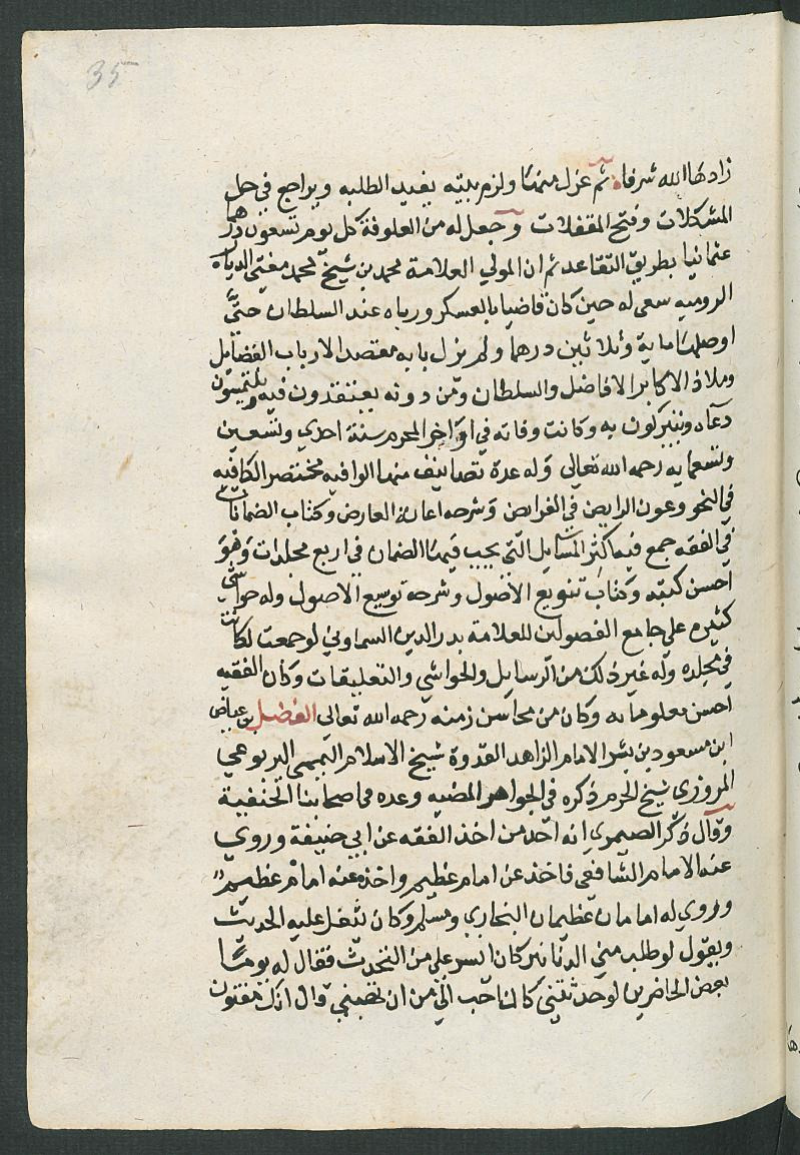 35
زادها الله شرفا ثم عزل منها ولزم بيته يفيد الطلبه ويراجع في حل
المشكلات وفتح المقفلات وجعل له من العلوفة كل يوم تسعون درهما
عثمانيا بطريق التقاعد ثم ان المولي العلامة محمد بن شيخ محمد مفتي الديار
الروميه سعى له حين كان قاضيا بالعسكر ورباه عند السلطان حتى
اوصلها ماية وثلاثين درهما ولم يزل بابه مقصد الارباب الفضايل
وملاذ الاكابر الافاضل والسلطان ومن دونه يعتقدون فيه ويلتمسون
دعاه ويتبركون به وكانت وفاته في اواخر المحرم سنة احدي وتسعين
وتسعمايه رحمه الله تعالي وله عدة تصانيف منها الوافيه مختصر الكافيه
في النحو وعون الرايض في الفرايض وشرحه اعانة العارض وكتاب الضمانات
في الفقه جمع فيه اكثر المسايل التي يجب فيها الضمان في اربع مجلدات وهو
احسن كتبه وكتاب تنويع الاصول وشرحه توسيع الاصول وله حواشي
كثيره علي جامع الفصولين للعلامة بدر الدين السماوني لو جمعت لكانت
في مجلده وله غير ذلك من الرسايل والحواشي والتعليقات وكان الفقه
احسن معلوماته وكان من محاسن زمنه رحمه الله تعالى الفضل بن عياض
ابن مسعود بن بشر الامام الزاهد القدوة شيخ الاسلام التميمي اليربوعي
المروزي شيخ الحرم ذكره في الجواهر المضيه وعده من اصحابنا الحنفية
وقال ذكر الصيمري انه احد من اخذ الفقه عن ابي حنيفة وروي
عنه الامام الشافعي فاخذ عن امام عظيم واخذ عنه امام عظيم
وروي له امامان عظيمان البخاري ومسلم وكان ثقل عليه الحديث
ويقول لو طلب مني الدنانير كان ايسر علي من التحدث فقال له يوما
بعض الحاضرين لو حدثتني كان احب الي من ان تهبني قال انك مفتون